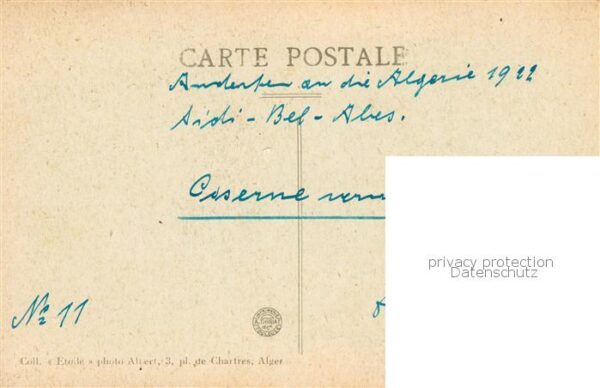 CARTE POSTALE
Anderken an die Algerie 1922
Sidi-Bel-Abes.
Caserne
privacy protection
Datenschutz
No 11
Coll. « Etoile » photo Albert, 3, pl. de Chartres, Alger